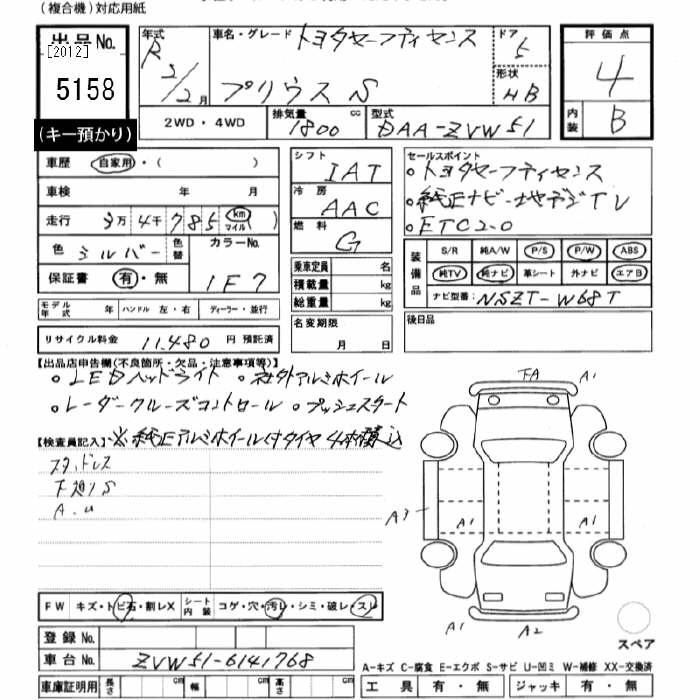 （複合機）対応用紙
出品No.
[2012]
5158
（キー預かり）
年式 R 2/2月
車名・グレード トヨタセーフティセンス
プリウス S
ドア 5
形状 HB
2WD・4WD
排気量 1800 cc
型式 DAA-ZVW51
評価点
4
内装 B
車歴 自家用・（ ）
車検 年 月
走行 3万4千785 km マイル
色 シルバー 色替 カラーNo.
保証書 有・無 1F7
モデル年式 ハンドル 左・右 ディーラー・並行
リサイクル料金 11.480 円 預託済
シフト IAT
冷房 AAC
燃料 G
乗車定員 名
積載量 kg
総重量 kg
名変期限
月 日
セールスポイント
○トヨタセーフティセンス
○純正ナビ地デジTV
○ETC2.0
装備品
S/R 純A/W P/S P/W ABS
純TV 純ナビ 革シート 外ナビ エアB
ナビ型番: NSZT-W68T
後日品
【出品店申告欄(不良箇所・欠品・注意事項等)】
○LEDヘッドライト ○社外アルミホイール
○レーダークルーズコントロール ○プッシュスタート
【検査員記入】※純正アルミホイール付タイヤ4本積込
スタッドレス
下廻りS
A.u
FW キズ・トビ石・割レX シート内装 コゲ・穴・汚レ・シミ・破レ・スレ
登録No.
車台No. ZVW51-6141768
車庫証明用 長さ cm 幅 cm 高さ cm
FA A1
A3 A1 A1
A1 A2
スペア
A-キズ C-腐食 E-エクボ S-サビ U-凹ミ W-補修 XX-交換済
工具 有・無 ジャッキ 有・無